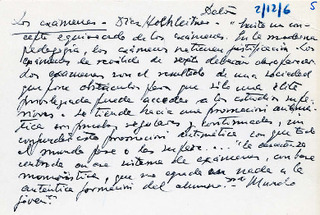 Delta 2/12/6 5
Los exámenes - Díez Hochleitner - "Existe un con-
cepto equivocado de los exámenes. En la moderna
pedagogía, los exámenes no tienen justificación. Los
exámenes de reválida de sexto deberían desaparecer.
Los exámenes son el resultado de una sociedad
que pone obstáculos para que sólo una élite
privilegiada pueda acceder a los estudios supe-
riores. Se tiende hacia una promoción automá-
tica con pruebas regulares y continuadas, sin
confundir esta promoción automática con que todo
el mundo pase a los super.... "La enseñanza
centrada en ese sistema de exámenes, con base
memorística, que no ayuda en nada a la
auténtica formación del alumno." Mundo
joven.